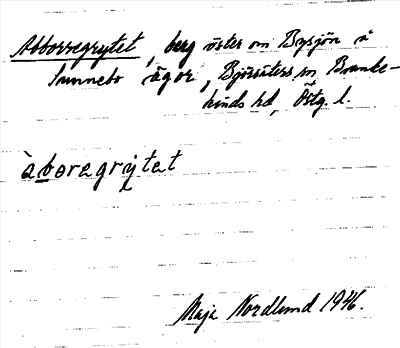 Abborregrytet, berg öster om Bysjön å
Sunnebo ägor, Björsäters sn Banke-
kinds hd, Östg. l.
àboregry̨tet
Maja Nordlund 1946.